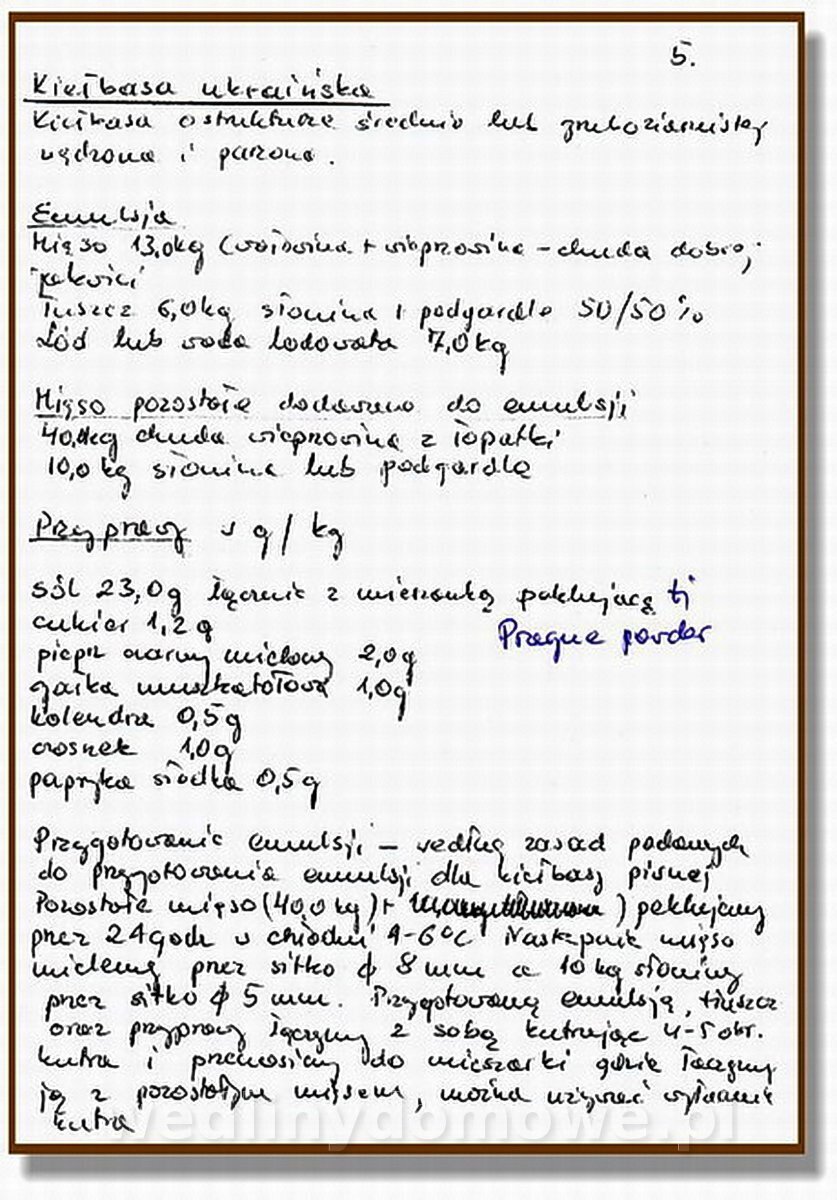 5.
Kiełbasa ukraińska
Kiełbasa o strukturze średnio lub gruboziarnistej
wędzona i parzona.
Emulsja
Mięso 13,0kg (wołowina + wieprzowina – chuda dobrej
jakości
Tłuszcz 6,0kg słonina i podgardle 50/50%
Lód lub woda lodowata 7,0kg
Mięso pozostałe dodawane do emulsji
40,0kg chuda wieprzowina z łopatki
10,0 kg słonina lub podgardle
Przyprawy w g / kg
Sól 23,0g łącznie z mieszanką peklującą tj
Prague powder
cukier 1,2g
pieprz czarny mielony 2,0g
gałka muszkatołowa 1,0g
kolendra 0,5g
czosnek 1,0g
papryka słodka 0,5g
Przygotowanie emulsji – według zasad podanych
do przygotowania emulsji dla kiełbasy
Pozostałe mięso (40,0 kg) + ) peklujemy
przez 24 godz w chłodni 4-6°C Następnie mięso
mielemy przez sitko φ 8 mm a 10 kg słoniny
przez sitko φ 5 mm. Przygotowaną emulsją, tłuszcz
oraz przyprawy łączymy z sobą kutrując 4-5 obr.
kutra i przenosimy do mieszarki gdzie łączymy
ją z pozostałym mięsem, można używać wyłącznie
kutra
wedlinydomowe.pl